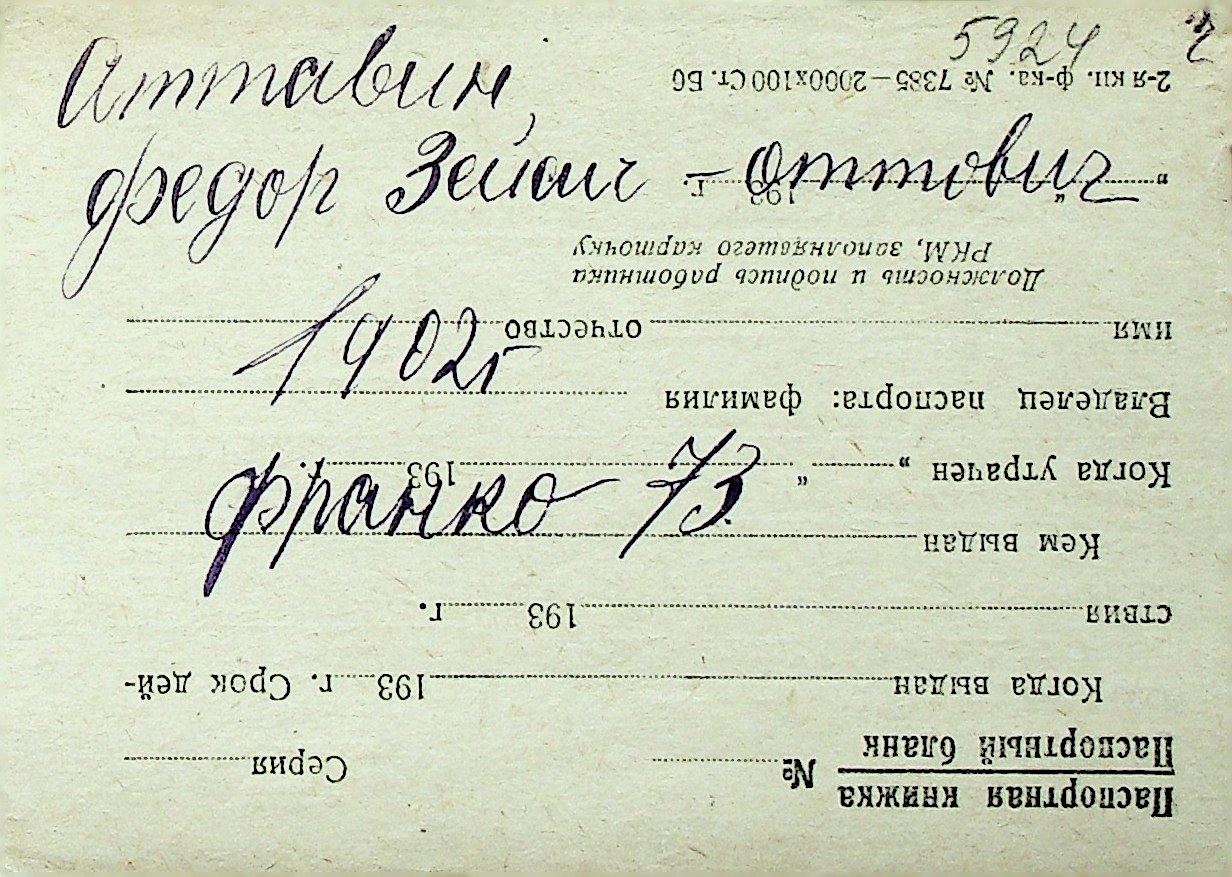 5924
Аттавин,
Федор Зейлич-Оттович
1902 г
Франко 73
Паспортная книжка
Паспортный бланк
№ Серия
Когда выдан 193 г. Срок дей-
ствия 193 г.
Кем выдан
Когда утрачен „ “ 193 г.
Владелец паспорта: фамилия
имя отчество
Должность и подпись работника
РКМ, заполнявшего карточку
„ “ 193 г.
2-я кн. ф-ка. № 7385—2000х100 Ст. Б6